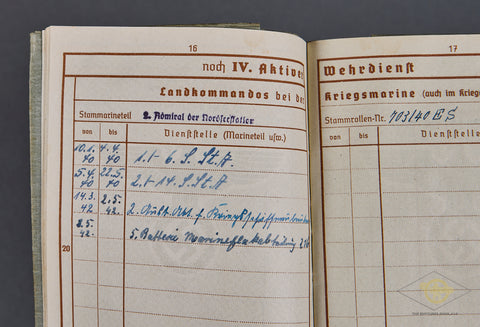 16
noch IV. Aktiver
Landkommandos bei der
Stammarineteil 2. Admiral der Nordseestation
von bis Dienststelle (Marineteil usw.)
10.1. 4.4.
40 40 1./ 6. S. St. A.
5.4. 22.5.
40 40 2./ 14. S. St. A
14.3. 2.5.
42 42. 2. Abt. f.
2.5.
42. 5. Batterie Marineflakabteilung
20
17
Wehrdienst
Kriegsmarine (auch im Kriege
Stammrollen-Nr. 703/40 ES
Dienststelle